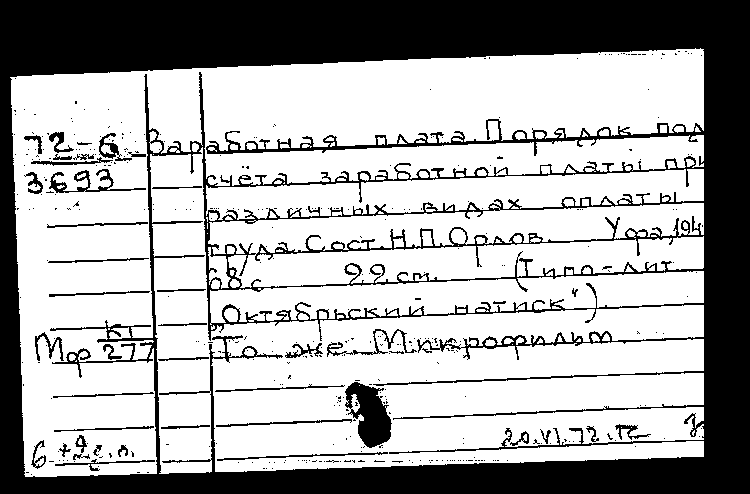 72-6 Заработная плата. Порядок под
3693 счёта заработной платы при
различных видах оплаты
труда. Сост. Н.П. Орлов. Уфа, 194
68 с. 22 см. (Типо-лит.
„Октябрьский натиск“).
Мф К1/277 То же. Микрофильм.
20.VI.72.